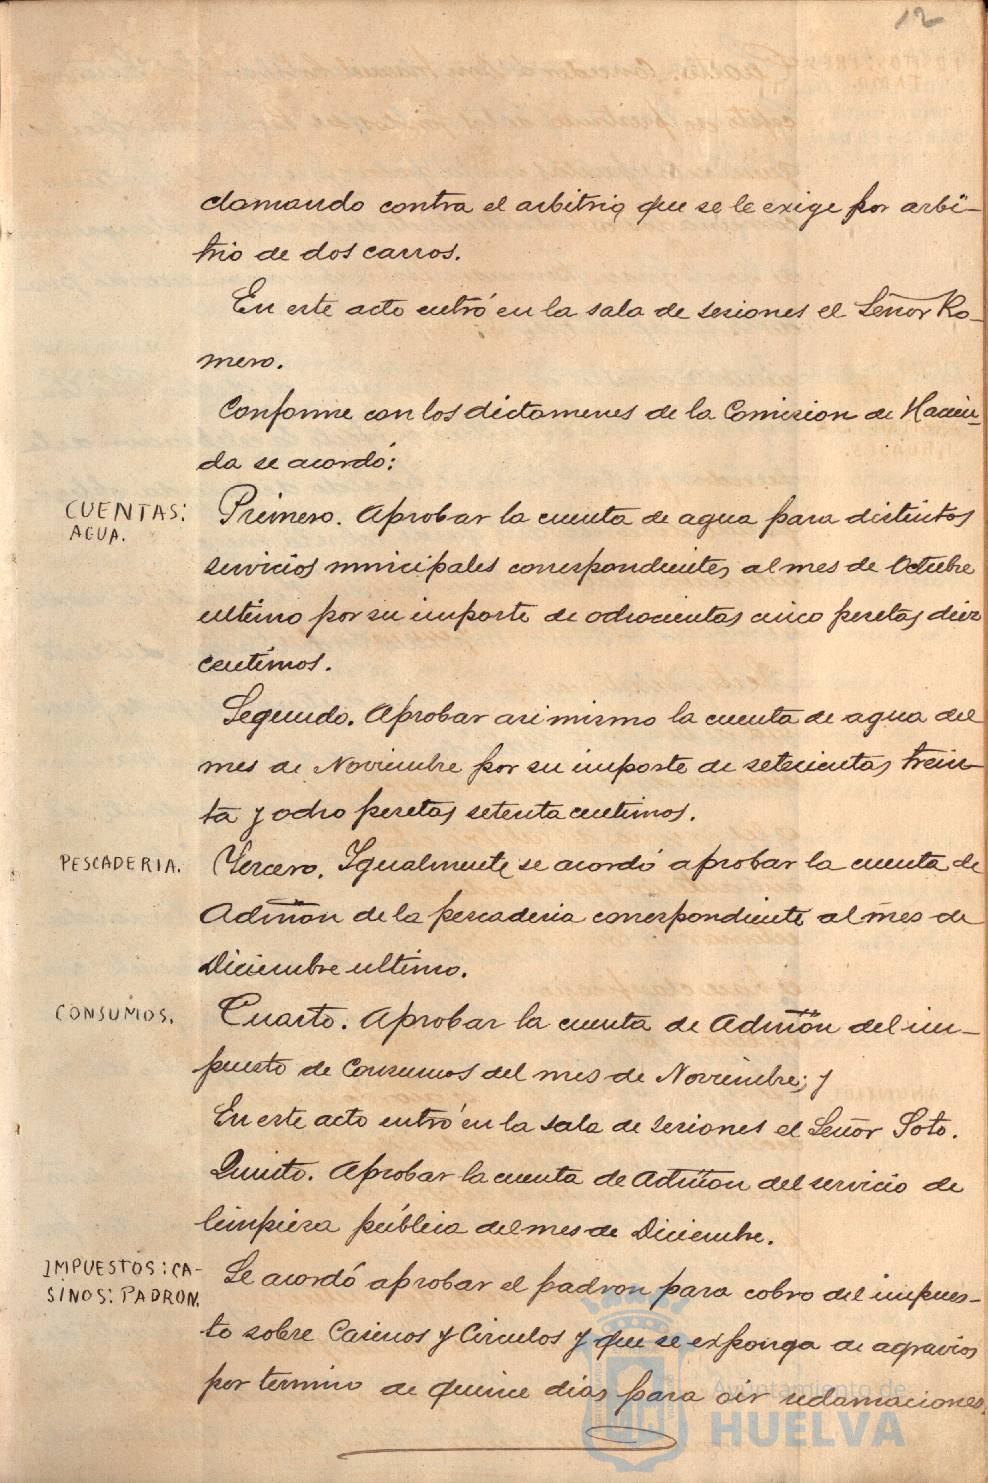 12
clamando contra el arbitrio que se le exige por arbi-
trio de dos carros.
En este acto entró en la sala de sesiones el Señor Ro-
mero.
Conforme con los dictamenes de la Comision de Hacien-
da se acordó:
CUENTAS:
AGUA.
Primero. Aprobar la cuenta de agua para distintos
servicios municipales correspondientes al mes de Octubre
ultimo por su importe de ochocientas cinco pesetas diez
centimos.
Segundo. Aprobar asi mismo la cuenta de agua del
mes de Noviembre por su importe de setecientas trein-
ta y ocho pesetas setenta centimos.
PESCADERIA.
Tercero. Igualmente se acordó aprobar la cuenta de
Admón de la pescaderia correspondiente al mes de
Diciembre ultimo.
CONSUMOS.
Cuarto. Aprobar la cuenta de Admón del im-
puesto de Consumos del mes de Noviembre; y
En este acto entró en la sala de sesiones el Señor Soto.
Quinto. Aprobar la cuenta de Admón del servicio de
limpieza pública del mes de Diciembre.
IMPUESTOS: CA-
SINOS: PADRON.
Se acordó aprobar el padron para cobro del impues-
to sobre Casinos y Circulos y que se exponga de agravios
por termino de quince dias para oir reclamaciones.
Ayuntamiento de
HUELVA